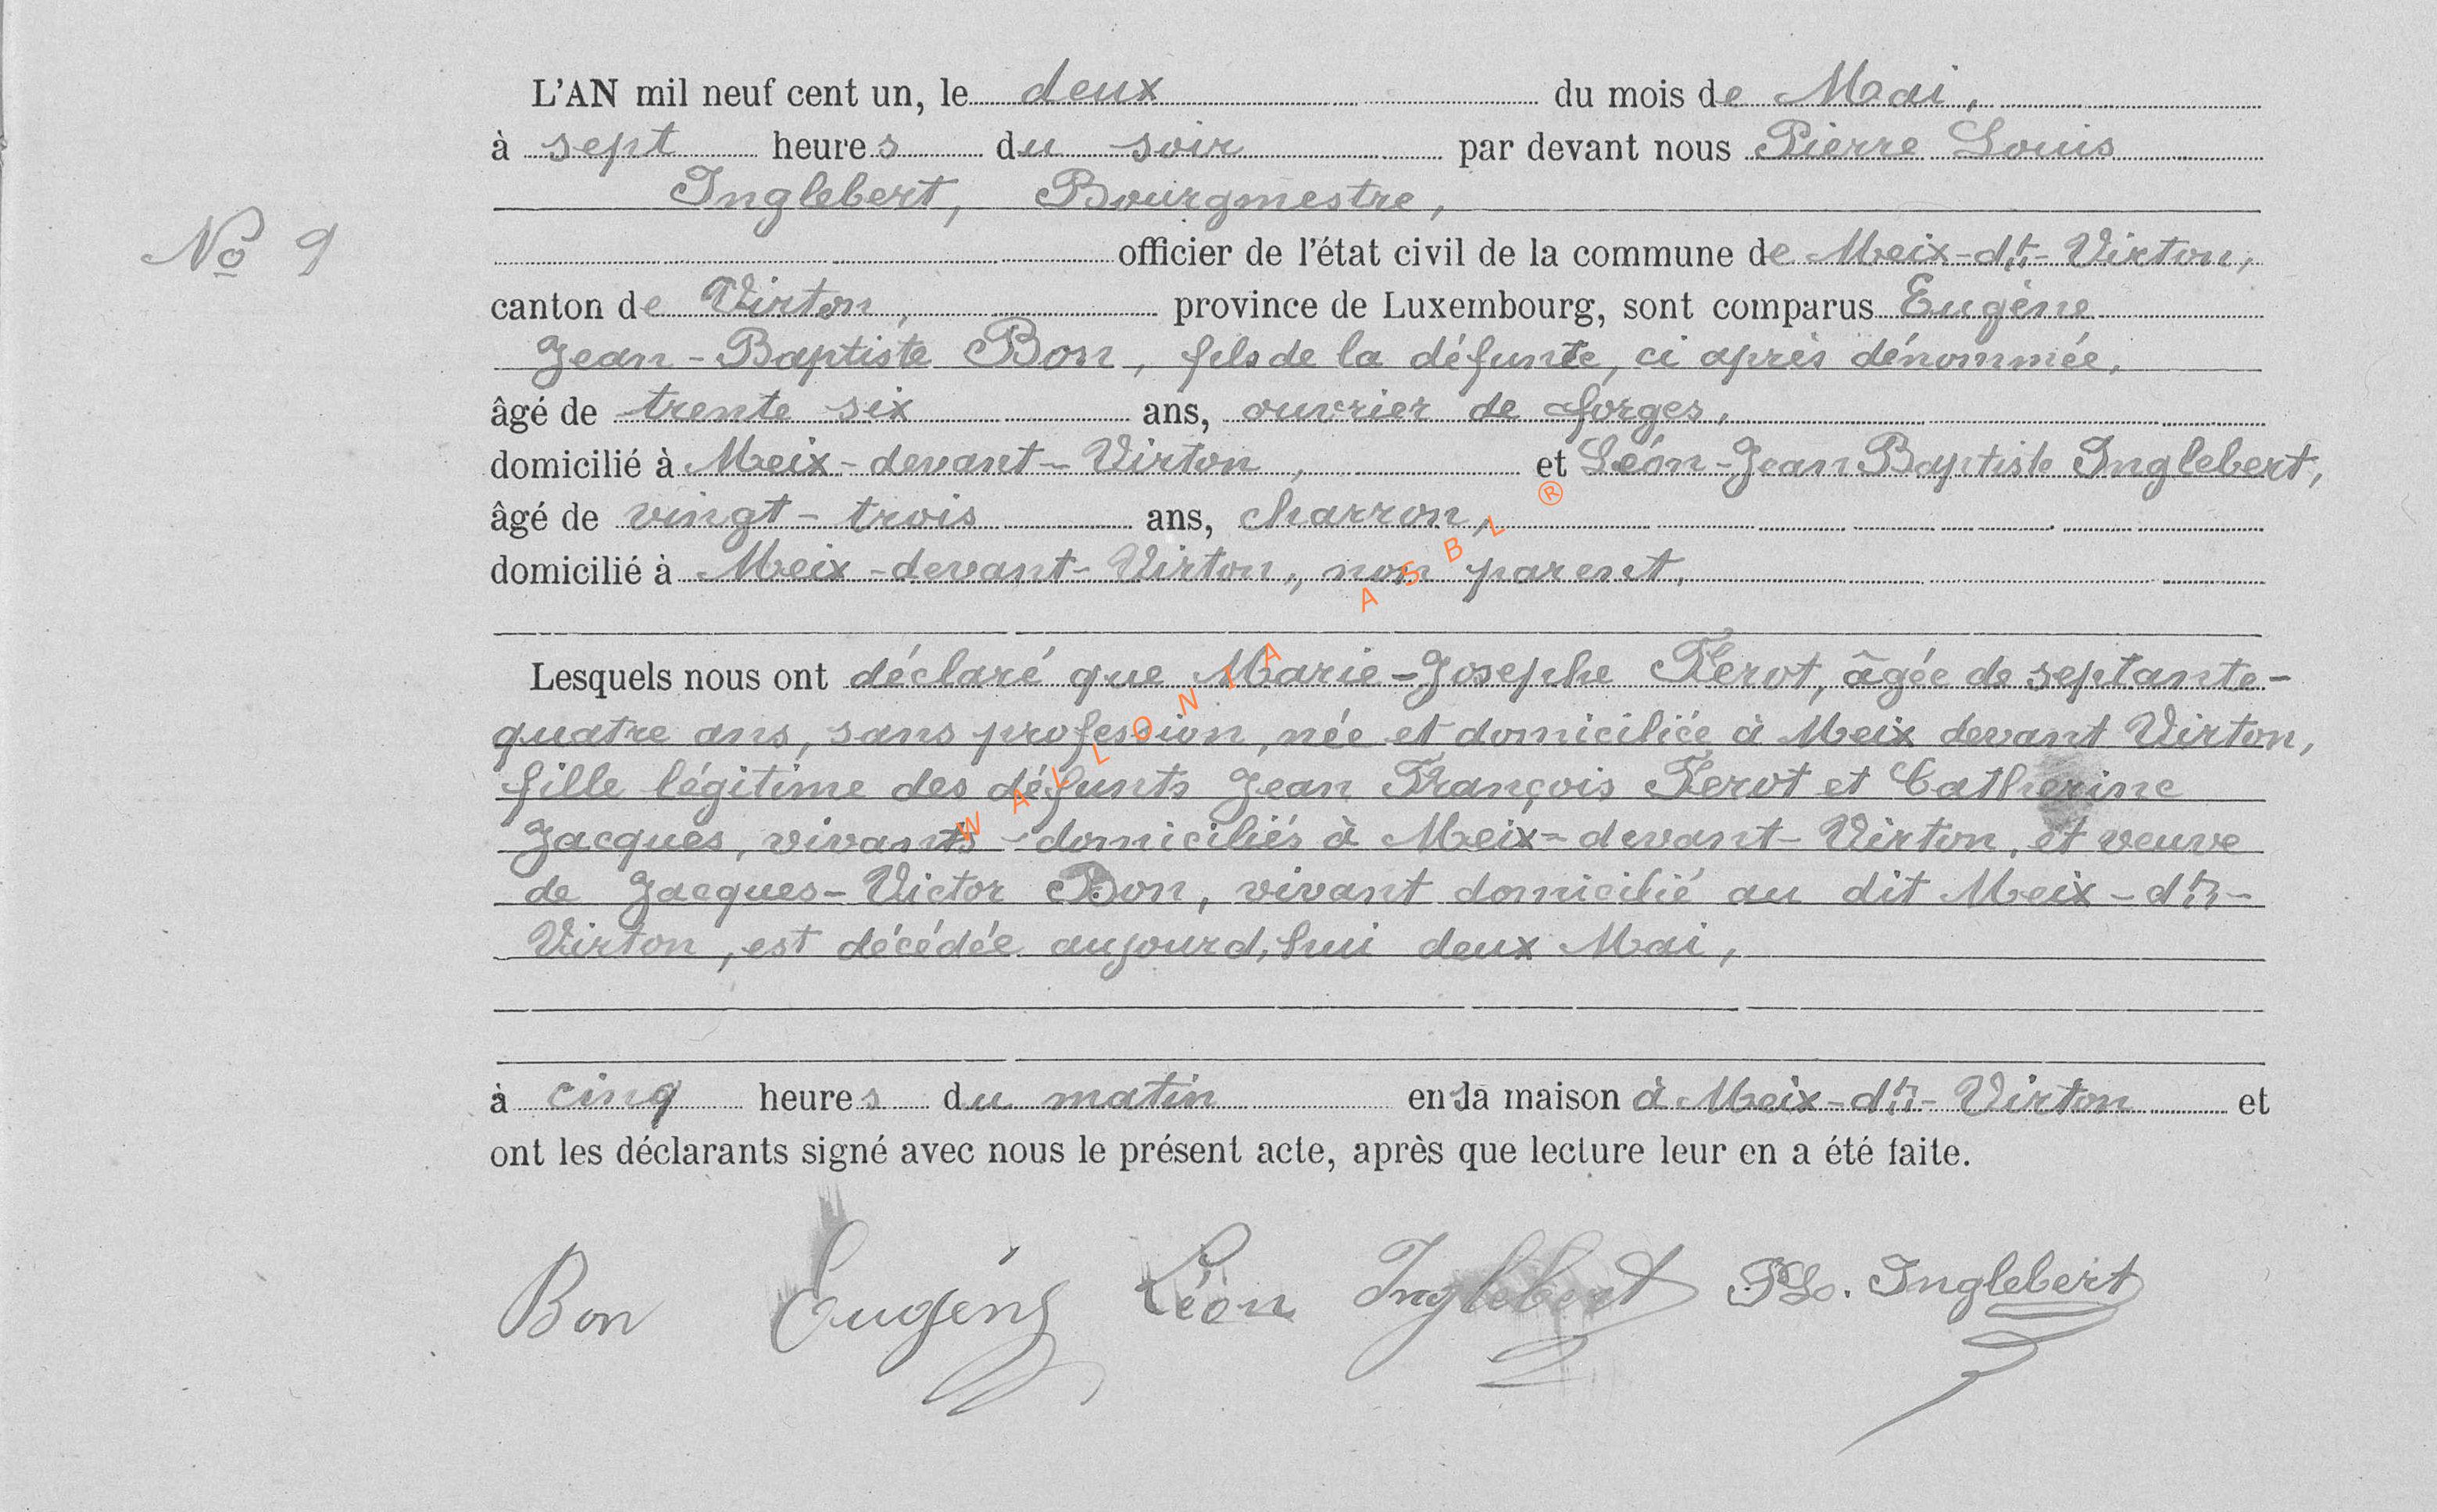 L'AN mil neuf cent un, le deux du mois de Mai,
à sept heures du soir par devant nous Pierre Louis
Inglebert, Bourgmestre,
No 9
officier de l'état civil de la commune de Meix-dt-Virton,
canton de Virton, province de Luxembourg, sont comparus Eugène
Jean-Baptiste Bon, fils de la défunte, ci après dénommée,
âgé de trente six ans, ouvrier de forges,
domicilié à Meix-devant-Virton, et Léon-Jean Baptiste Inglebert,
âgé de vingt-trois ans, charron,
domicilié à Meix-devant-Virton, non parent.
Lesquels nous ont déclaré que Marie-Josephe Ferot, âgée de septante-
quatre ans, sans profession, née et domiciliée à Meix devant Virton,
fille légitime des défunts Jean François Ferot et Catherine
Jacques, vivants domiciliés à Meix-devant-Virton, et veuve
de Jacques-Victor Bon, vivant domicilié au dit Meix-dt-
Virton, est décédée aujourd,hui deux Mai,
à cinq heures du matin en sa maison à Meix-dt-Virton et
ont les déclarants signé avec nous le présent acte, après que lecture leur en a été faite.
Bon Eugène Léon Inglebert PL. Inglebert
WALLONIA ASBL ®